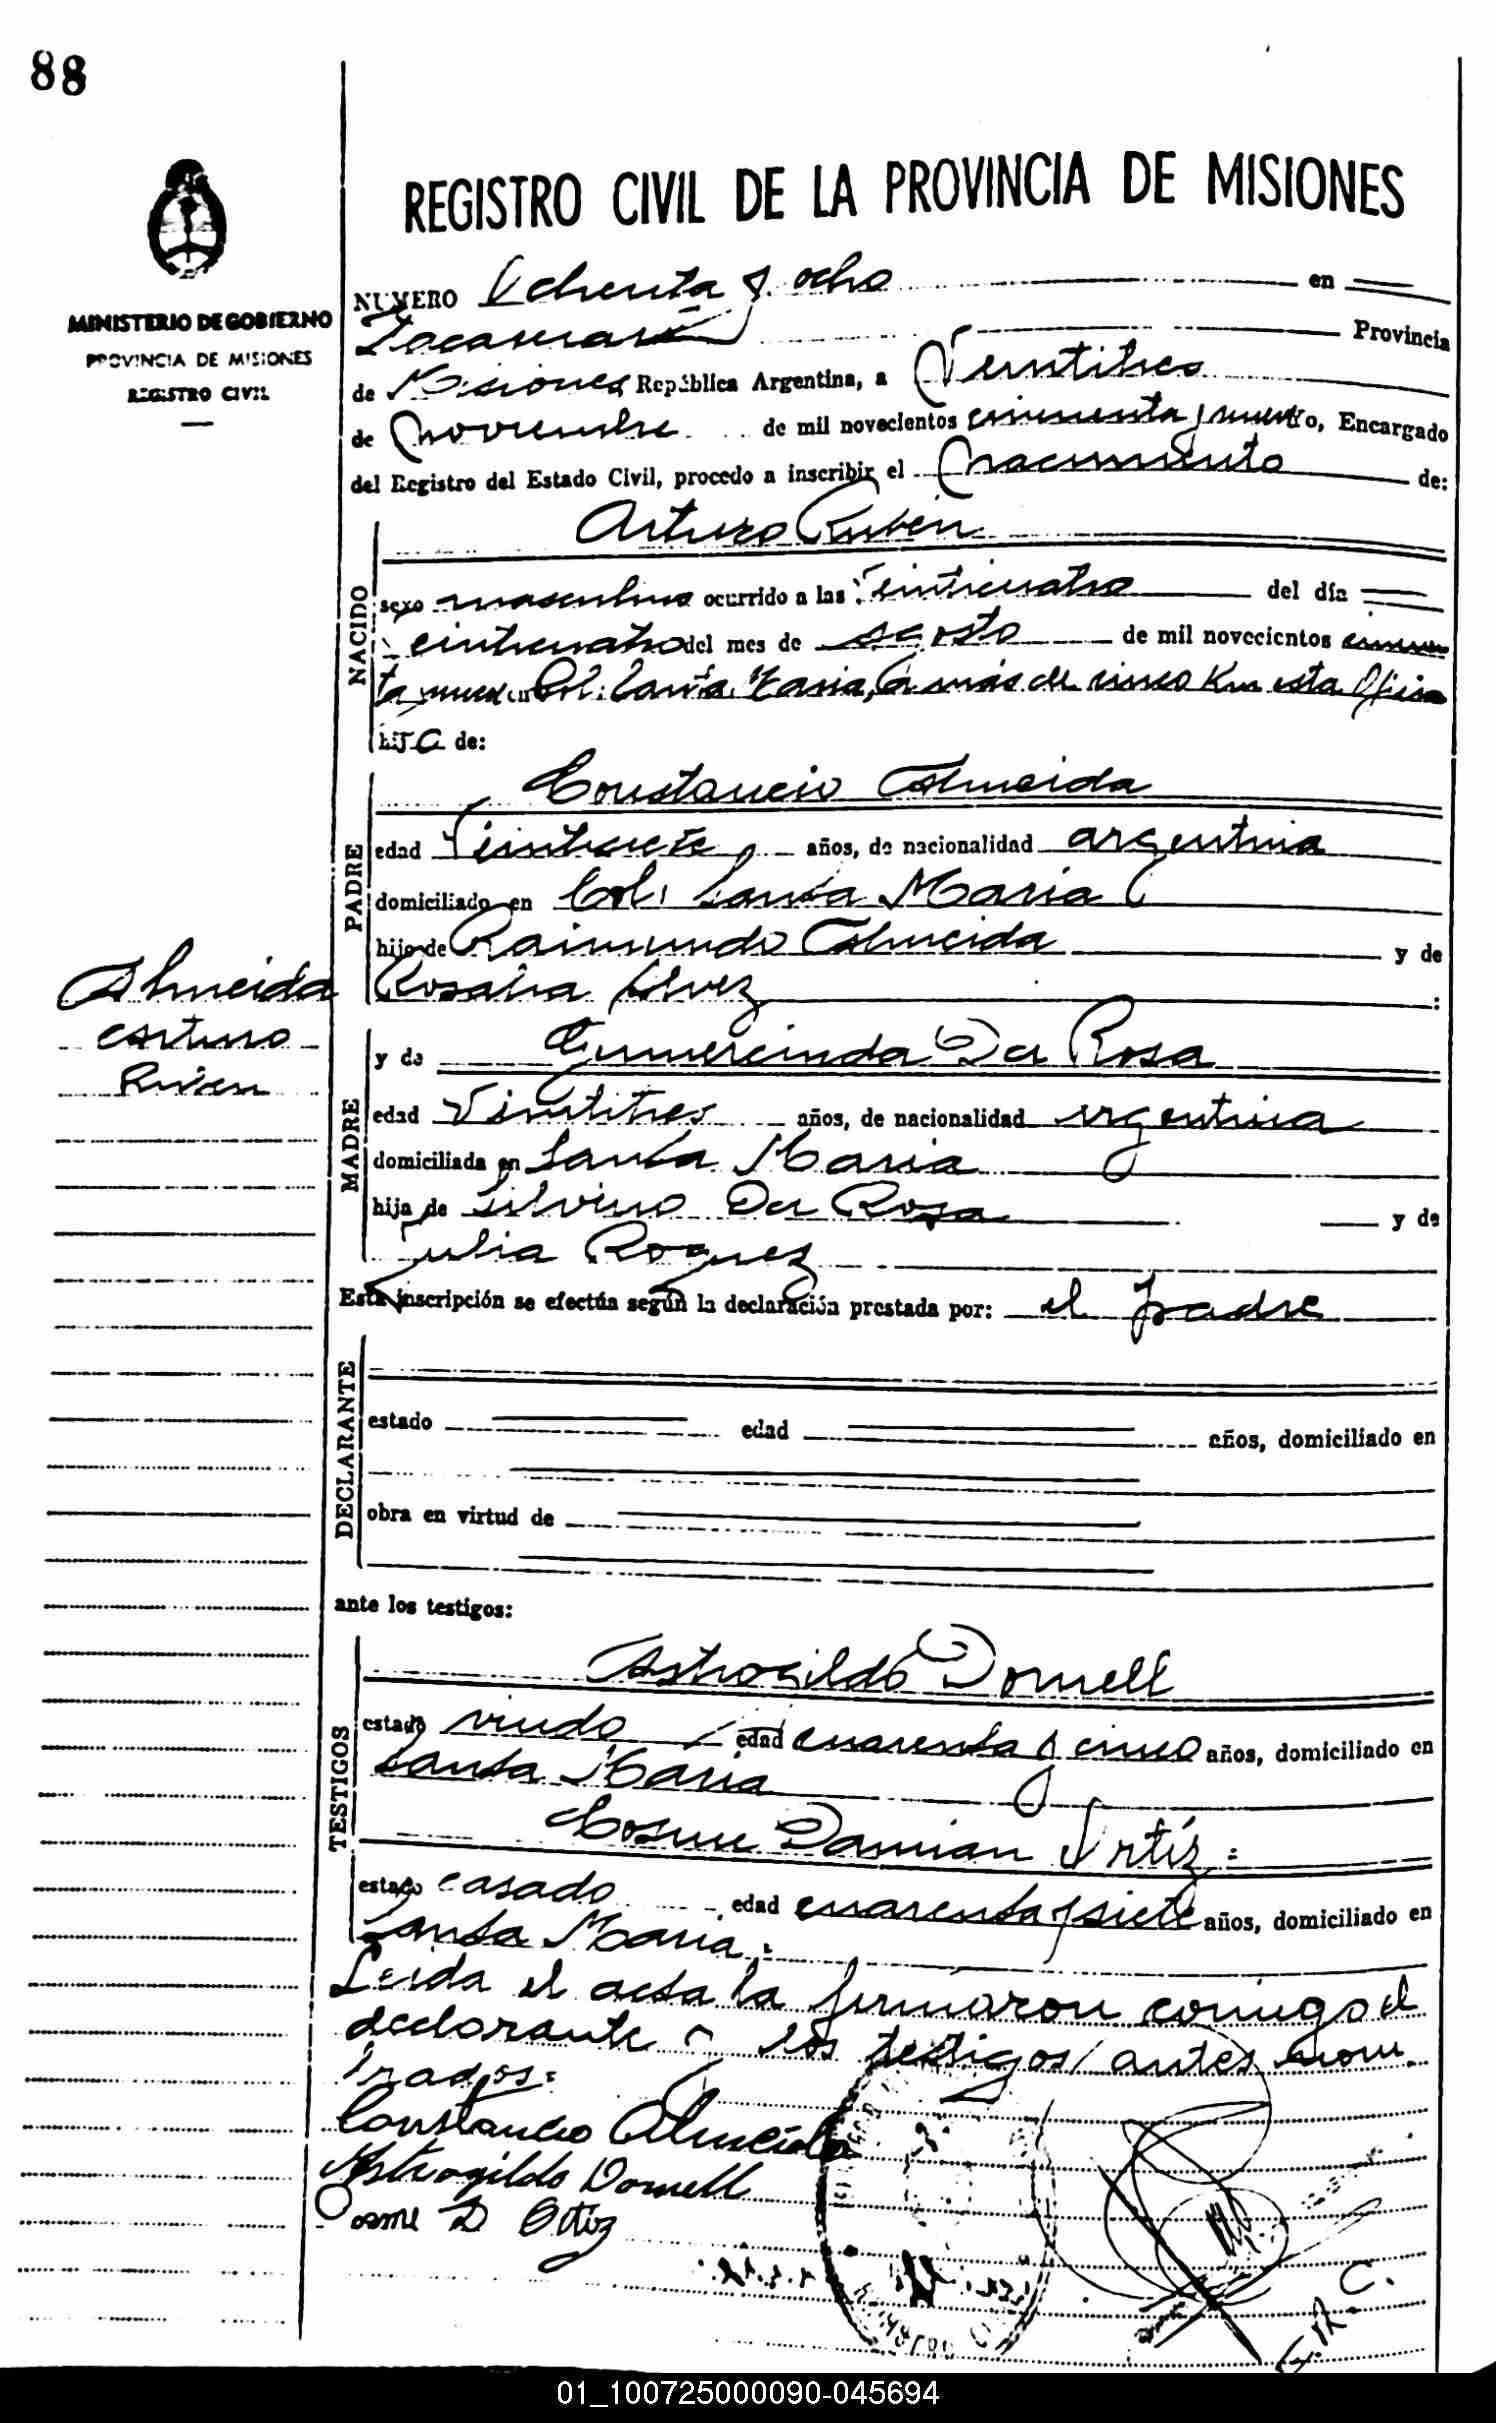 88
REGISTRO CIVIL DE LA PROVINCIA DE MISIONES
MINISTERIO DE GOBIERNO
PROVINCIA DE MISIONES
REGISTRO CIVIL
NUMERO Ochenta y ocho en
Provincia
de Misiones República Argentina, a Veintitres
de Noviembre de mil novecientos cincuenta y nueve, Encargado
del Registro del Estado Civil, procedo a inscribir el Nacimiento de:
NACIDO
Arturo Ruben
sexo masculino ocurrido a las Veinticuatro del día
Veinticuatro del mes de Agosto de mil novecientos cincuen
ta y nueve en Col. Santa Maria, a más de cinco Km esta Oficina
hijo de:
PADRE
Constancio Almeida
edad años, de nacionalidad argentina
domiciliado en Col. Santa Maria
hijo de Raimundo Almeida y de
Rosalia Alvez :
Almeida
Arturo
Ruben
MADRE
y de Gumercinda Da Rosa
edad Vintitres años, de nacionalidad argentina
domiciliada en Santa Maria
hija de Silvino Da Rosa y de
Julia Roquez
Esta inscripción se efectúa según la declaración prestada por: el padre
DECLARANTE
estado edad años, domiciliado en
obra en virtud de
ante los testigos:
TESTIGOS
Astrogildo Dornell
estado viudo edad cuarenta y cinco años, domiciliado en
Santa Maria
Cosme Damian Ortíz =
estado casado edad cuarenta y siete años, domiciliado en
Santa Maria =
Leida el acta la firmaron comigo el
declarante y los testigos antes nom
brados =
Constancio Almeida
Astrogildo Dornell
Cosme D Ortiz
01_100725000090-045694